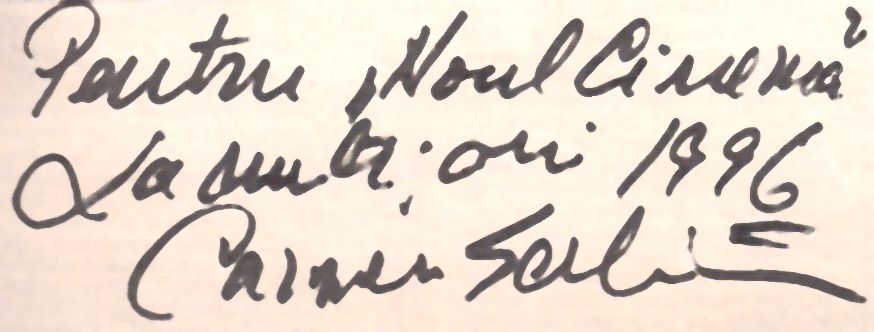 Pentru „Noul Cinema”
La mulți ani 1996
Carmen Serban